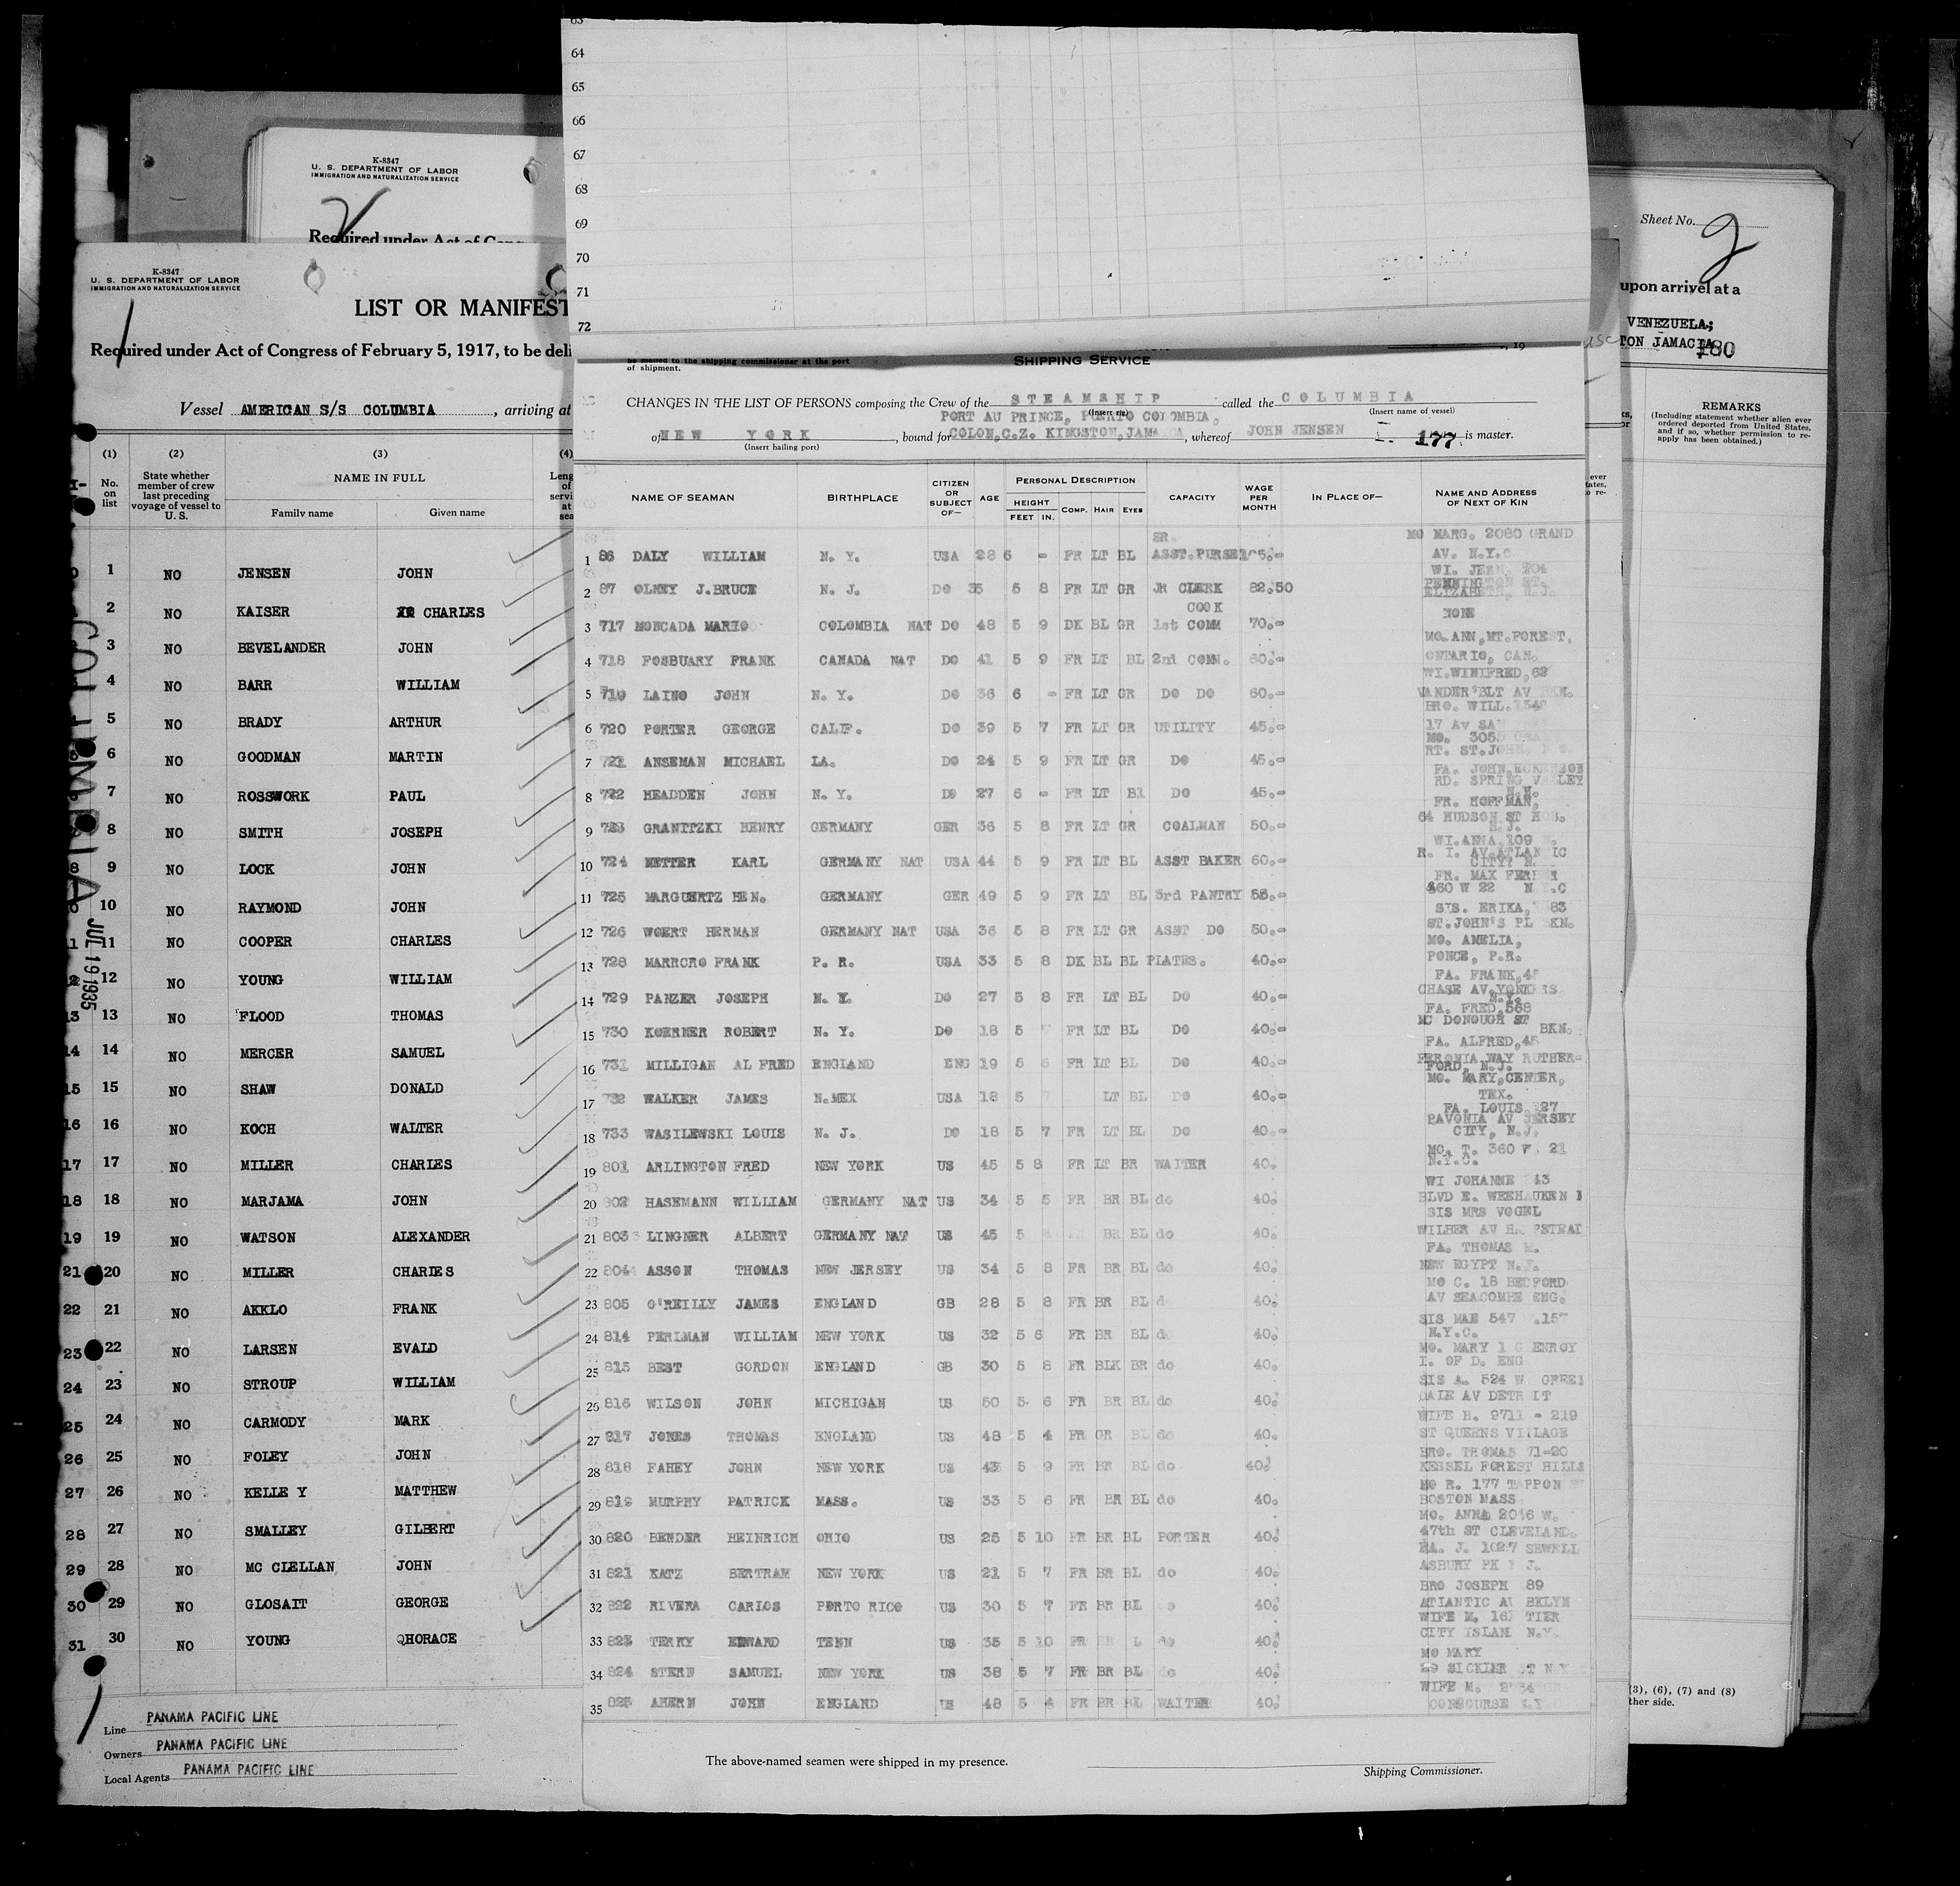 K-8347
U. S. DEPARTMENT OF LABOR
IMMIGRATION AND NATURALIZATION SERVICE
2
Required under Act of
K-8347
U. S. DEPARTMENT OF LABOR
IMMIGRATION AND NATURALIZATION SERVICE
1
LIST OR MANIFEST
Required under Act of Congress of February 5, 1917, to be deli
Vessel AMERICAN S/S COLUMBIA, arriving at
(1) (2) (3) (4)
No. on list
State whether member of crew last preceding voyage of vessel to U. S.
NAME IN FULL
Family name Given name
1 NO JENSEN JOHN
2 NO KAISER CHARLES
3 NO BEVELANDER JOHN
4 NO BARR WILLIAM
5 NO BRADY ARTHUR
6 NO GOODMAN MARTIN
7 NO ROSSWORK PAUL
8 NO SMITH JOSEPH
9 NO LOCK JOHN
10 NO RAYMOND JOHN
11 NO COOPER CHARLES
12 NO YOUNG WILLIAM
13 NO FLOOD THOMAS
14 14 NO MERCER SAMUEL
15 15 NO SHAW DONALD
16 16 NO KOCH WALTER
17 17 NO MILLER CHARLES
18 18 NO MARJAMA JOHN
19 19 NO WATSON ALEXANDER
21 20 NO MILLER CHARLES
22 21 NO AKKLO FRANK
23 22 NO LARSEN EVALD
24 23 NO STROUP WILLIAM
25 24 NO CARMODY MARK
26 25 NO FOLEY JOHN
27 26 NO KELLE Y MATTHEW
28 27 NO SMALLEY GILBERT
29 28 NO MC CLELLAN JOHN
30 29 NO GLOSAIT GEORGE
31 30 NO YOUNG HORACE
COLUMBIA
JUL 19 1935
Line PANAMA PACIFIC LINE
Owners PANAMA PACIFIC LINE
Local Agents PANAMA PACIFIC LINE
63
64
65
66
67
68
69
70
71
72
be mailed to the shipping commissioner at the port
of shipment.
SHIPPING SERVICE
, 19
CHANGES IN THE LIST OF PERSONS composing the Crew of the STEAMSHIP called the COLUMBIA
(Insert rig) (Insert name of vessel)
PORT AU PRINCE, PUERTO COLOMBIA,
of NEW YORK, bound for COLON,C.Z. KINGSTON,JAMA A, whereof JOHN JENSEN 177 is master.
(Insert hailing port)
NAME OF SEAMAN BIRTHPLACE CITIZEN OR SUBJECT OF— AGE PERSONAL DESCRIPTION HEIGHT FEET IN. COMP. HAIR EYES CAPACITY WAGE PER MONTH IN PLACE OF— NAME AND ADDRESS OF NEXT OF KIN
1 86 DALY WILLIAM N. Y. USA 28 6 - FR LT BL SR. ASST.PURSER 105.- MO MARG. 2080 GRAND AV. N.Y.C
2 87 OLNEY J.BRUCE N. J. DO 35 5 8 FR LT GR JR CLERK 82.50 WI. JEAN, PENNINGTON ST. ELIZABETH, N.J.
3 717 MONCADA MARIO COLOMBIA NAT DO 48 5 9 DK BL GR COOK 1st COMM 70.- NONE
4 718 FOSBUARY FRANK CANADA NAT DO 41 5 9 FR LT BL 2nd COMM. 60.- MO.ANN,MT.FOREST, ONTARIO, CAN.
5 719 LAINO JOHN N. Y. DO 36 6 - FR LT GR DO DO 60.- WI.WINIFRED,62 VANDER'BLT AV BKN.
6 720 PORTER GEORGE CALIF. DO 39 5 7 FR LT GR UTILITY 45.- BRO. WILL. 17 AV
7 721 ANSEMAN MICHAEL LA. DO 24 5 9 FR LT GR DO 45.- MO. RT. ST.
8 722 HEADDEN JOHN N. Y. DO 27 6 - FR LT Bl DO 45.- FA. JOHN, RD. SPRING VALLEY N.Y.
9 723 GRANITZKI HENRY GERMANY GER 36 5 8 FR LT GR COALMAN 50.- FR. HOFFMAN, 64 HUDSON ST HOB. N.J.
10 724 NETTER KARL GERMANY NAT USA 44 5 9 FR LT BL ASST BAKER 60.- WI.ANNA 109 R. I. AV.ATLANTIC CITY N.
11 725 MARGUERTZ HEN. GERMANY GER 49 5 9 FR LT BL 3rd PANTRY 55.- FR. MAX FERBER 460 W 22 N.Y.C
12 726 WOERT HERMAN GERMANY NAT USA 36 5 8 FR LT GR ASST DO 50.- SIS. ERIKA, 83 ST.JOHN'S PL BKN.
13 728 MARRCRO FRANK P. R. USA 33 5 8 DK BL BL PLATES. 40.- MO. AMELIA, PONCE, P.R.
14 729 PANZER JOSEPH N. Y. DO 27 5 8 FR LT BL DO 40.- FA. FRANK,45 CHASE AV.YONKERS. N.Y.
15 730 KOERNER ROBERT N. Y. DO 18 5 FR LT BL DO 40.- FA. FRED,568 MC DONOUGH ST BKN.
16 731 MILLIGAN AL FRED ENGLAND ENG 19 5 6 FR LT BL DO 40.- FA. ALFRED,45 WAY RUTHER- FORD, N.J.
17 732 WALKER JAMES N.MEX USA 18 5 7 LT BL DO 40.- MO. MARY,CENTER, TEX.
18 733 WASILEWSKI LOUIS N. J. DO 18 5 7 FR LT BL DO 40.- FA. LOUIS 27 PAVONIA AV JERSEY CITY, N.J.
19 801 ARLINGTON FRED NEW YORK US 45 5 8 FR LT BR WAITER 40. MO. T. 360 W. 21 N.Y.C.
20 802 HASEMANN WILLIAM GERMANY NAT US 34 5 5 FR BR BL do 40. WI JOHANNE 43 BLVD E. WEEHAUKEN
21 803 LINGNER ALBERT GERMANY NAT US 45 5 BR BL do 40. SIS MRS VOGEL WILBER AV
22 804 ASSON THOMAS NEW JERSEY US 34 5 8 FR BR BL do 40. FA. THOMAS M. NEW EGYPT N.J.
23 805 O'REILLY JAMES ENGLAND GB 28 5 8 FR BR BL d 40. MO C. 18 BEDFORD AV SEACOMBE ENG.
24 814 PERLMAN WILLIAM NEW YORK US 32 5 6 FR BR BL do 40. SIS MAE 547 N.Y.C.
25 815 BEST GORDON ENGLAND GB 30 5 8 FR BLK BR do 40. MO. MARY 1 GLENROY I. OF D. ENG
26 816 WILSON JOHN MICHIGAN US 50 5 6 FR BR BL do 40. SIS A. 524 W. DALE AV DETR IT
27 817 JONES THOMAS ENGLAND US 48 5 4 FR GR BL do 40. WIFE H. 9711 - 219 ST QUEENS VILLAGE
28 818 FAHEY JOHN NEW YORK US 43 5 9 FR BR BL do 40. BRO. THOMAS 71-20 KESSEL FOREST HILLS
29 819 MURPHY PATRICK MASS. US 33 5 6 FR BR BL do 40. MO R. 177 TAPPON BOSTON MASS
30 820 BENDER HEINRICH OHIO US 25 5 10 FR BR BL PORTER 40. MO. ANNA 2046 W. 47th ST CLEVELAND.
31 821 KATZ BERTRAM NEW YORK US 21 5 7 FR BR BL do 40. FA. J. 1027 SEWELL ASBURY PK J.
32 822 RIVERA CARLOS PORTO RICO US 30 5 7 FR BR BL do 40. BRO JOSEPH 89 ATLANTIC AV BKLYN
33 823 TERRY EDWARD TENN US 35 5 10 FR L do 40. WIFE M. 16 TIER CITY ISLAN N.Y.
34 824 STERN SAMUEL NEW YORK US 38 5 7 FR BR BL do 40. MO MARY 29 SICKLER ST N.Y
35 825 AHERN JOHN ENGLAND US 48 5 4 FR BR BL WAITER 40. WIFE M. CONCOURSE N.Y
The above-named seamen were shipped in my presence.
Shipping Commissioner.
Sheet No. 2
upon arrival at a
VENEZUELA;
TON JAMACIA
180
REMARKS
(Including statement whether alien ever ordered deported from United States, and if so, whether permission to re-apply has been obtained.)
(3), (6), (7) and (8)
ther side.